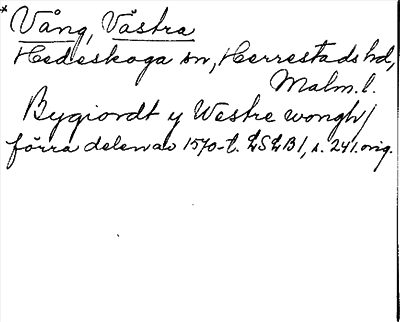 * Vång, Västra
Hedeskoga sn, Herrestads hd,
Malm. l.
Bygiordt y Westre wongh/
förra delen av 1570-t. LSLB1, s. 241. orig.